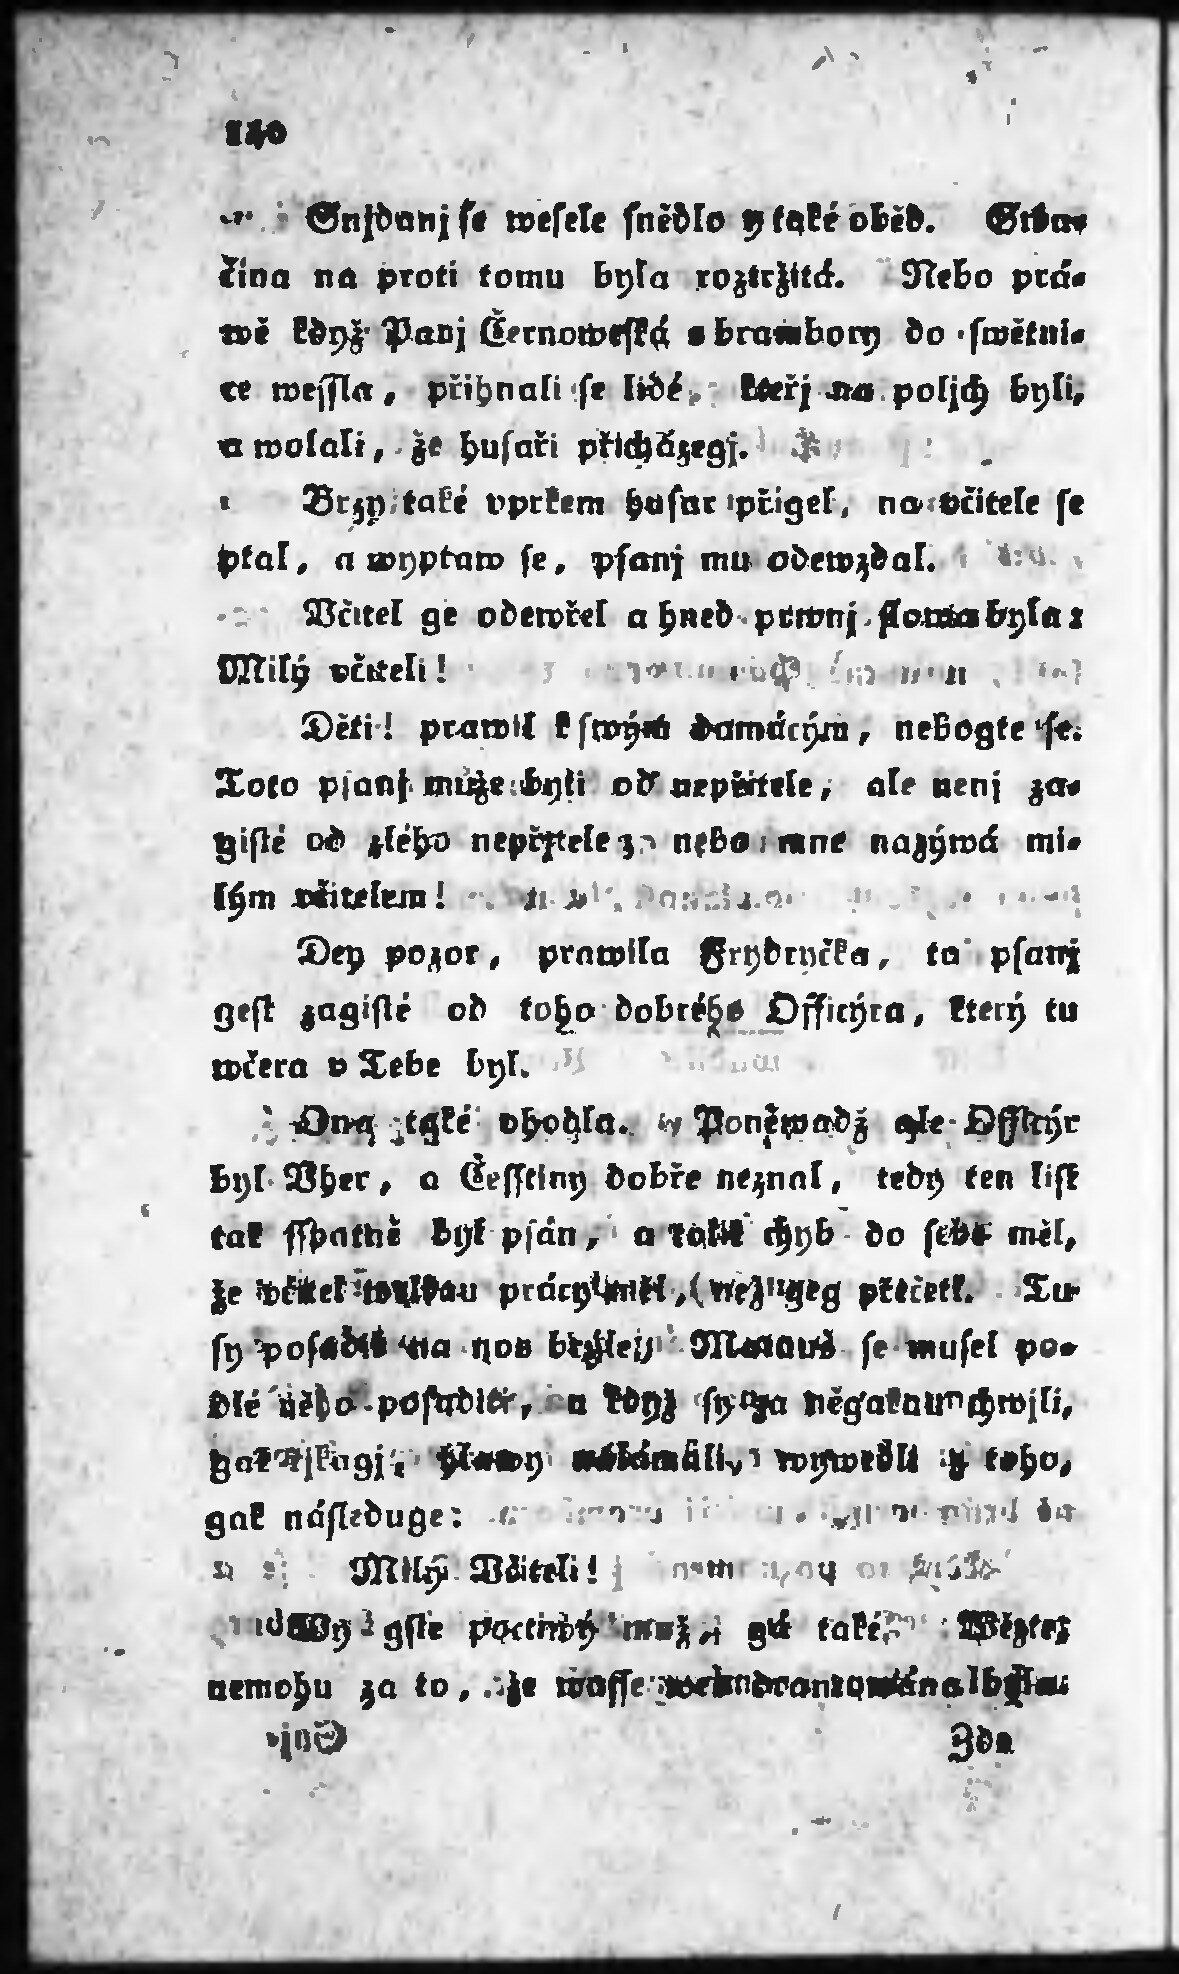 140
Snjdanj se wesele snědlo y také oběd. Swa-
čina na proti tomu byla roztržitá. Nebo prá-
wě když Panj Černoweská s brambory do swětni-
ce wessla, přihnali se lidé, kteřj na poljch byli,
a wolali, že husaři přicházegj.
Brzy také vprkem husar přigel, na včitele se
ptal, a wyptaw se, psanj mu odewzdal.
Včitel ge odewřel a hned prwnj slowa byla:
Milý včiteli!
Děti! prawil k swým domácým, nebogte se.
Toto psanj může byti od nepřitele, ale nenj za-
gisté od zlého nepřjtele; nebo mne nazýwá mi-
lým včitelem!
Dey pozor, prawila Frydryčka, to psanj
gest zagisté od toho dobrého Officýra, který tu
wčera v Tebe byl.
Ona také vhodla. Poněwadž ale Officýr
byl Vher, a Čessstiny dobře neznal, tedy ten list
tak sspatně byl psán, a tolik chyb do sebe měl,
že včitel welkau prácy měl, než geg přečetl. Tu
sy posadil na nos brýle, Matauš se musel po-
dlé něho posaditi, a když sy za něgakau chwjli,
gak řjkagj, hlawy nalámali, wywedli z toho,
gak následuge:
Milý Včiteli!
Wy gste poctiwý muž, gá také. Wězte,
nemohu za to, že wasse wes drancowána byla.
Zda